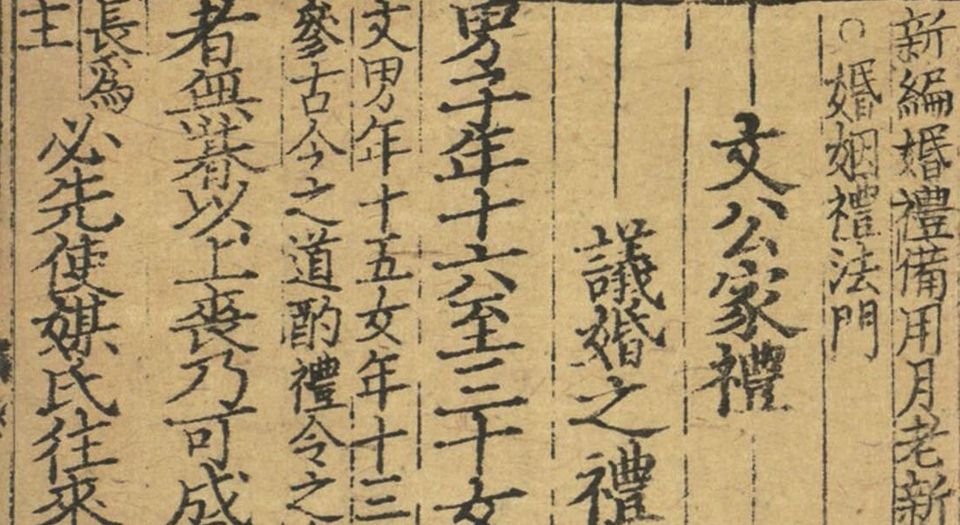 新編婚禮備用月老新
○婚姻禮法門
文公家禮
議婚之禮
男子年十六至三十女
文男年十五女年十三
參古今之道酌禮令之
者無朞以上喪乃可成
長爲
主
必先使媒氏往來